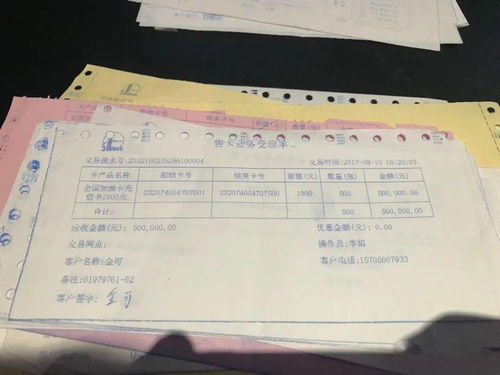 售卡业务受理单
交易流水号:2032150235296100004 交易时间:2017-08-10 16:21:03
卡产品名称 起始卡号 结束卡号 面值(元) 数量(张) 金额(元)
全国加油卡充值卡1000元 232074004707001 232074004707500 1000 500 500,000.00
合计: 500 500,000.00
应收金额(元): 500,000.00 优惠金额(元): 0.00
交易网点: 操作员:李娟
客户名称:金可 客户电话:15705607933
备注:01979761-62
客户签字: 金可